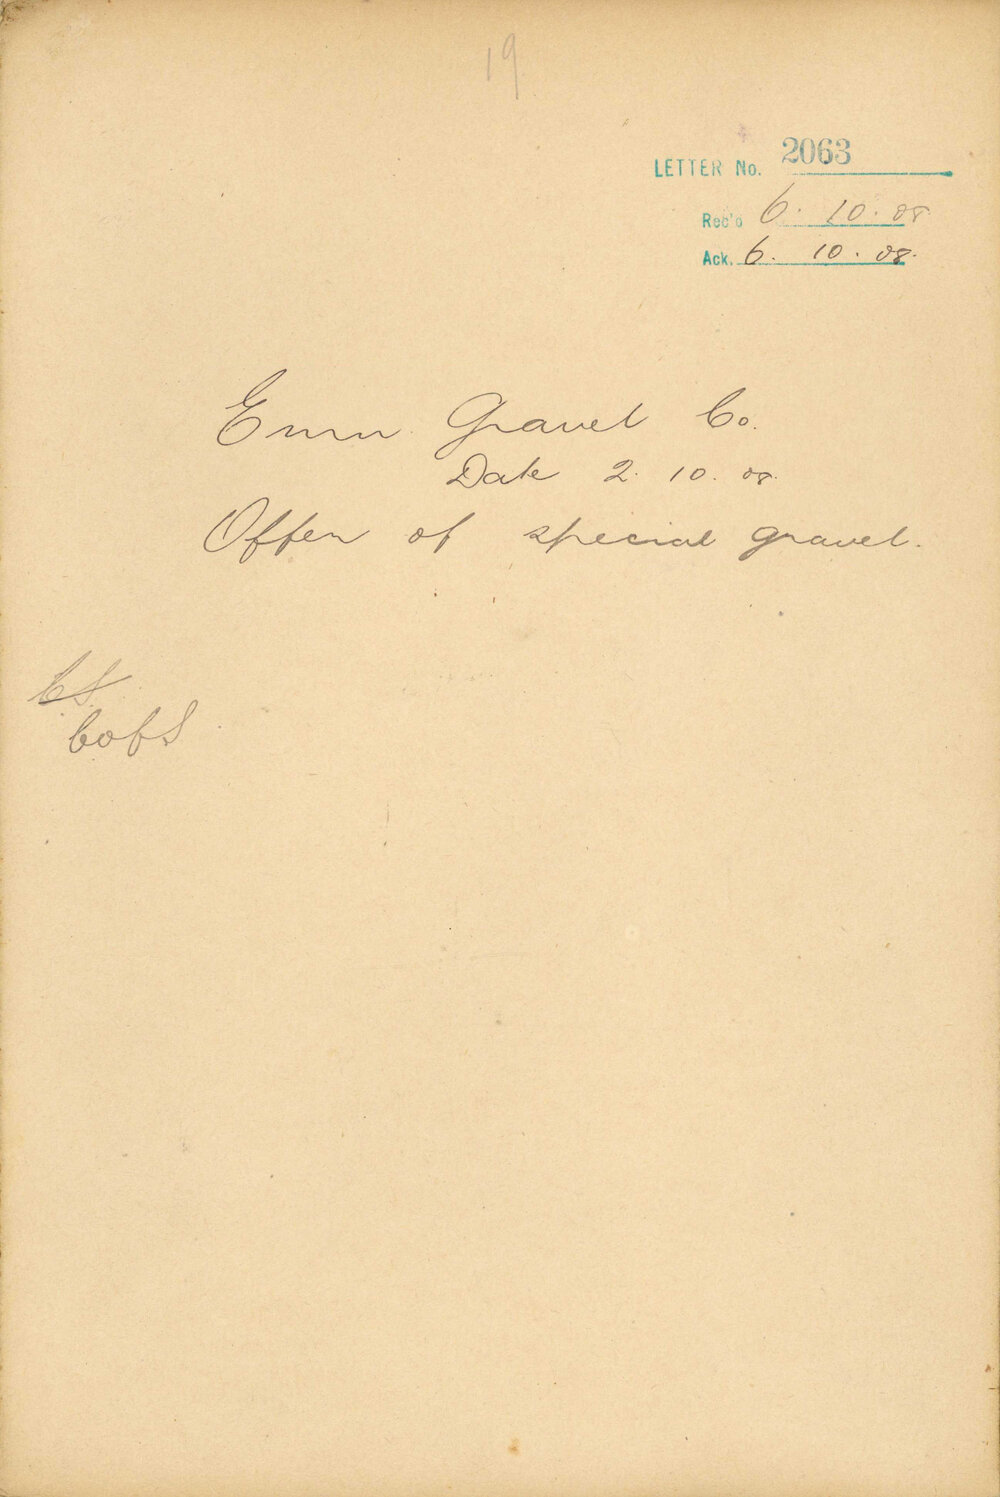 19
LETTER No. 2063
Rec'd 6. 10. 08
Ack. 6. 10. 08.
Emu Gravel Co.
Date 2. 10. 08.
Offer of special gravel.
CS
CofS